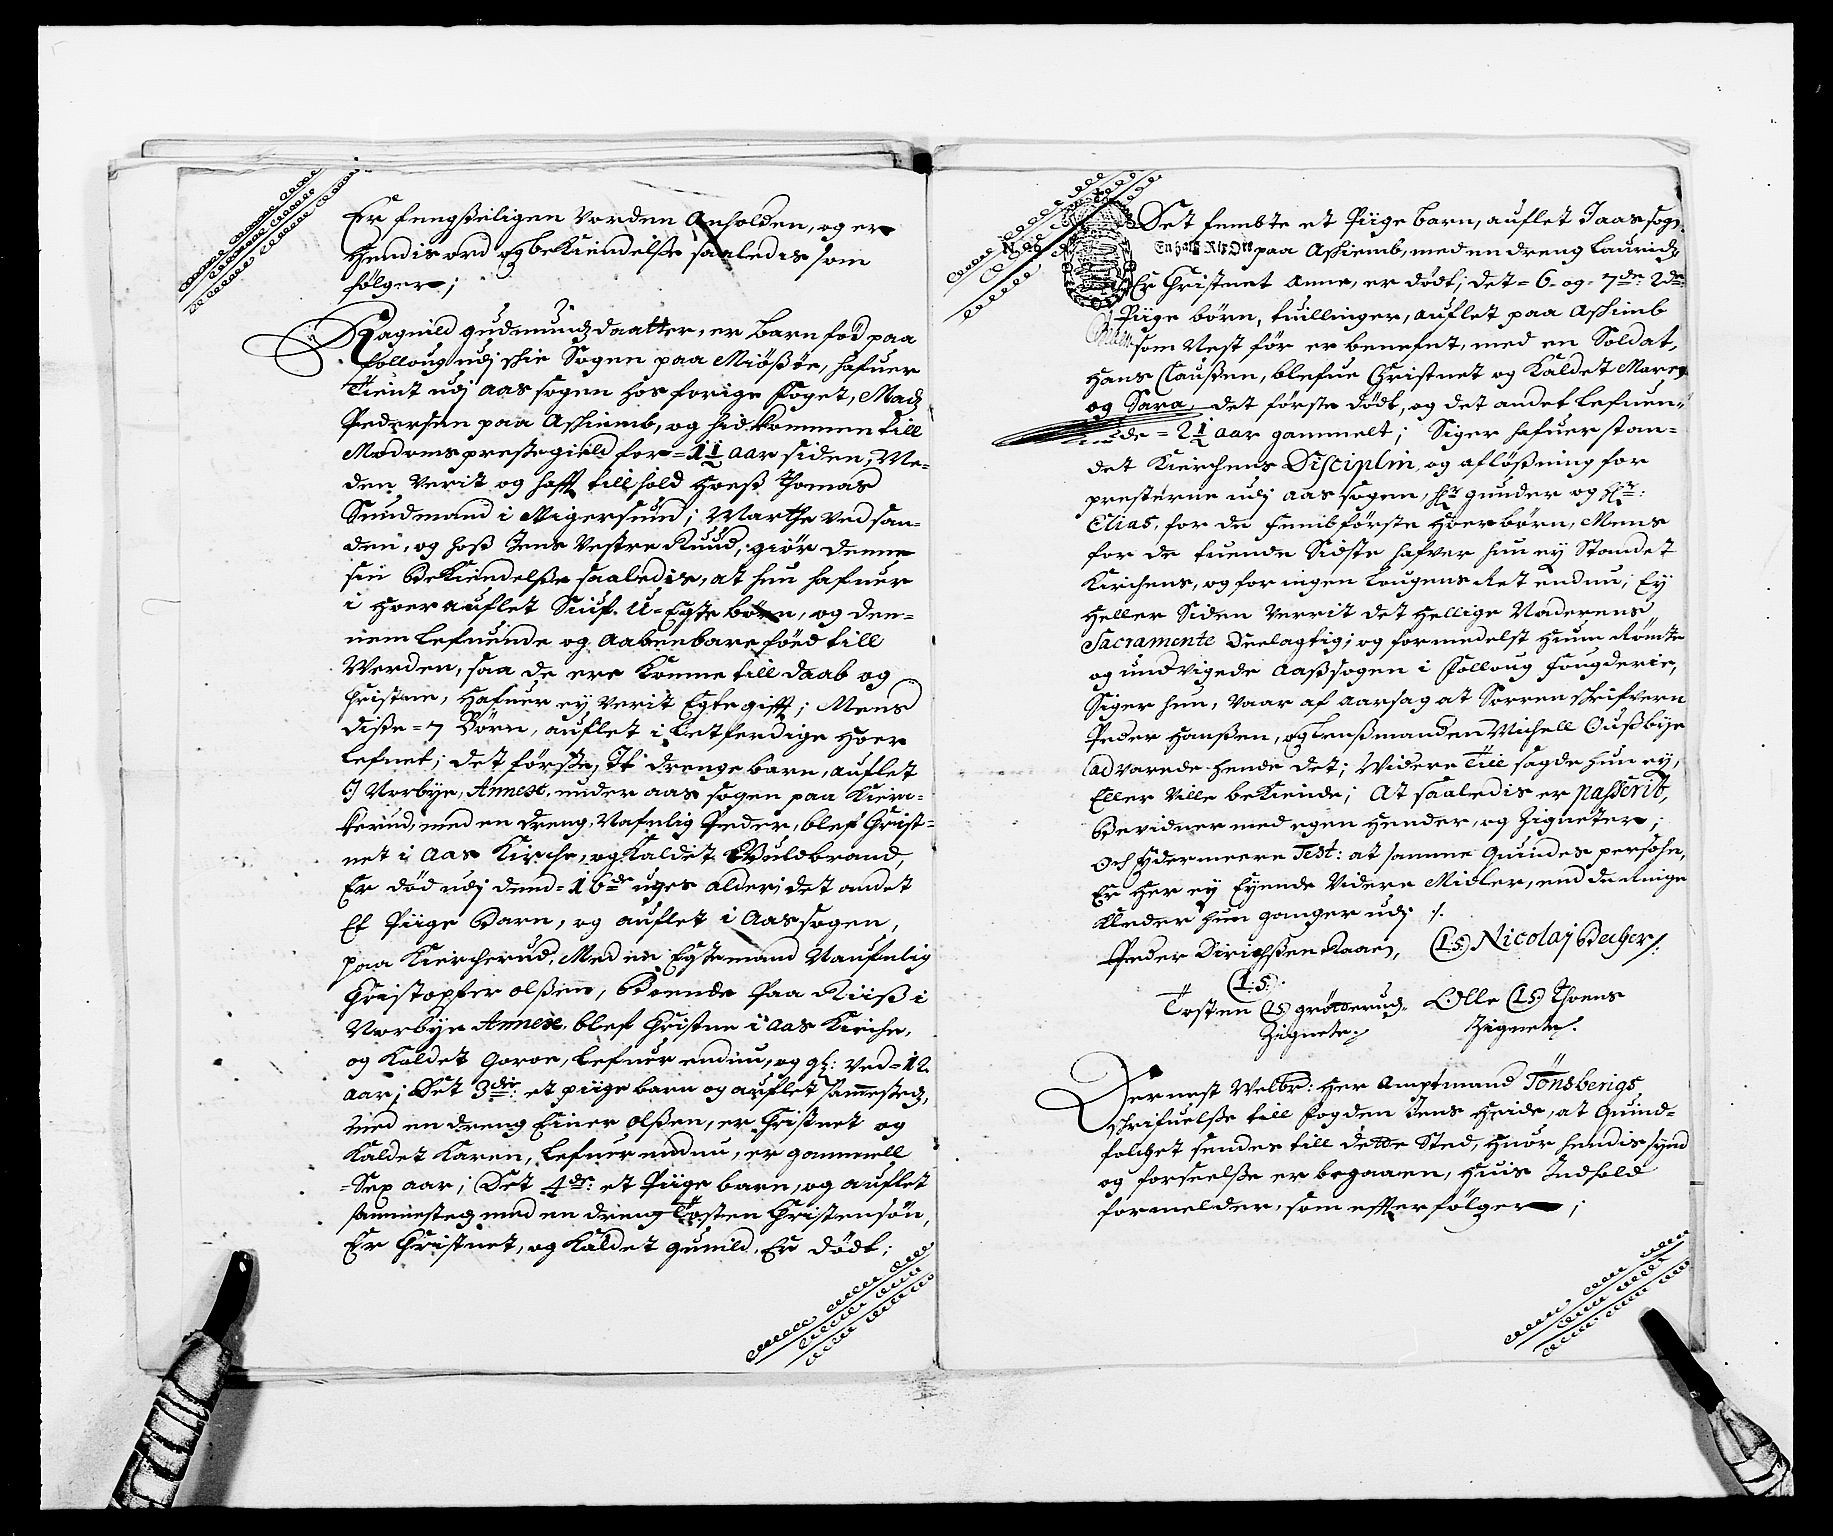 Er fengsteiligen vorden Anholden, og er
hendis ord og bekiendelsse saaledis som
følger;
Ragnild gudmundsdaatter, er barn fød paa
folloug udj schie Sogen paa Miøssøe, hafuer
tient udj aas sogen hos forige foget, Mads
Pedersen paa Askiemb, og hid kommen till
Modoms prestegield for = 1½ aar siden; Me-
den verit og hafft till hold hoess Thomas
Sundmand i Vigersund; Marthe ved san-
den, og hoss Jens Vestre Ruud, giør denne
sin Bekiendelsse saaledis, at hun hafuer
i hoer auflet Siuf U-Egte børn, og den-
nem lefuende og Aabenbare føed till
Werden, saa de ere komne till daab og
Christne, hafuer ej verit Egte gifft; Mens
disse = 7 Børn, auflet i letferdige hoer
lefnet; det første, It drenge barn, auflet
I Norbye Annest. under aas sogen paa Kierc-
kerud, med en dreng, Nafnlig Peder, blef Christ-
net i Aas Kirche, og kaldet Guldbrand,
Er død udj dend = 16de uges alder; det andet
Et Piige Barn, og auflet i Aas sogen,
paa Kiercherud, Med en Egtemand Naufnlig
Christopher olssen, Boende Paa Riiss i
Norbye Annex, blef Christne i aas Kirche,
og kaldet Goroe, lefuer endnu, og gl: ved = 12
aar; Det 3die: et piige barn og auflet sammesteds,
med en dreng Einer olssen, er Christnet og
kaldet Karen, lefuer endnu, er gammell
-Sex aar; Det 4de: et Piige barn, og auflet
sammested med en dreng Tosten Christensøn,
Er Christnet, og kaldet gunild, Er dødt;
Det fembte et Piige barn, auflet J aas sogn
En halff Rix Ort paa Askiemb, med en dreng laurids
Er Christnet Anne, er dødt; det = 6. og 7de: 2de
Piige børn, tuillinger, auflet paa Askimb
som Nest før er benefnt, med en Soldat,
Hans Claussen, blefue Christnet og kaldet Mare
og Sara det første dødt, og det andet lefuen-
de = 2½ aar gammelt; Siger hafuer stan-
det Kierchens Disciplin, og afløssning for
presterne udj aas sogen, Hr gunder og Hr:
Elias, for de femb første hoer børn, Mens
for de tuende Sidste hafver hun ej Standet
Kirchens, og for ingen lougens Ret endnu; Ej
heller Siden verrit det hellige Naderens
Sacramente deelagtig; og formedelst hun Rømte
og undvigede Aassogen i folloug fougderie,
Siger hun, vaar af aarsag at Sorrenschrifvern
Peder Hanssen, og lensmanden Michell Oussbye
advarede hende det; Widere till sagde hun ej,
Eller ville bekiende; At saaledis er passerit,
Bevidner med egen hender, og Zigneter;
Och Ydermeere Test: at samme Quindes persohn,
Er her ej Eyende videre Midler, end de ringe
klæder hun ganger udj ./.
Peder Dirichssen Raaen, (LS) Nicolaj Becher/:
(LS)
Tosten (LS) grøtterud. Olle (LS) Thoens
Zignete. Zignete.
Dernest Welbr: Her Amptmand Tönsbergs
schrifuelsse till fogden Jens Heide, at Quind-
folchet sendes till dette Sted, huor hendis synd
og forseelsse er begaaen, huis Indhold
formelder, som effterfølger;